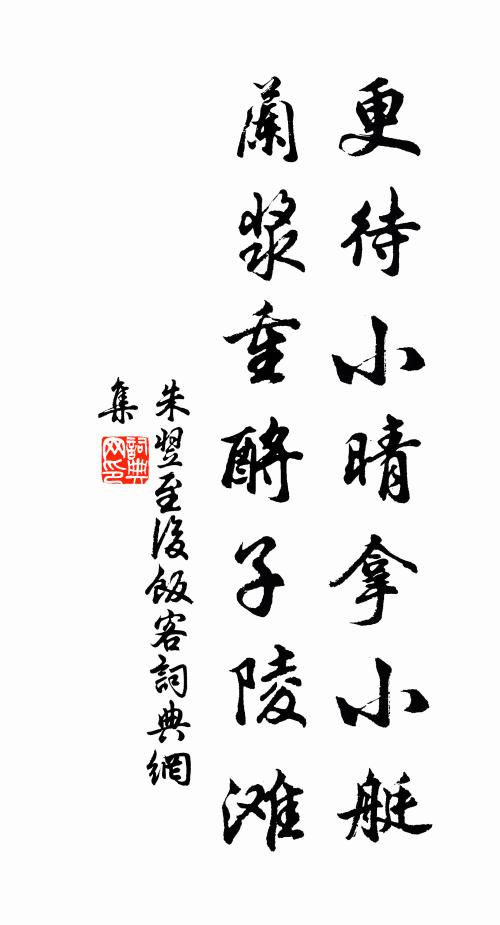 更待小晴拿小艇
蘭漿重酹子陵滩
朱翌至後飯客詞典網
集
詞典
网印